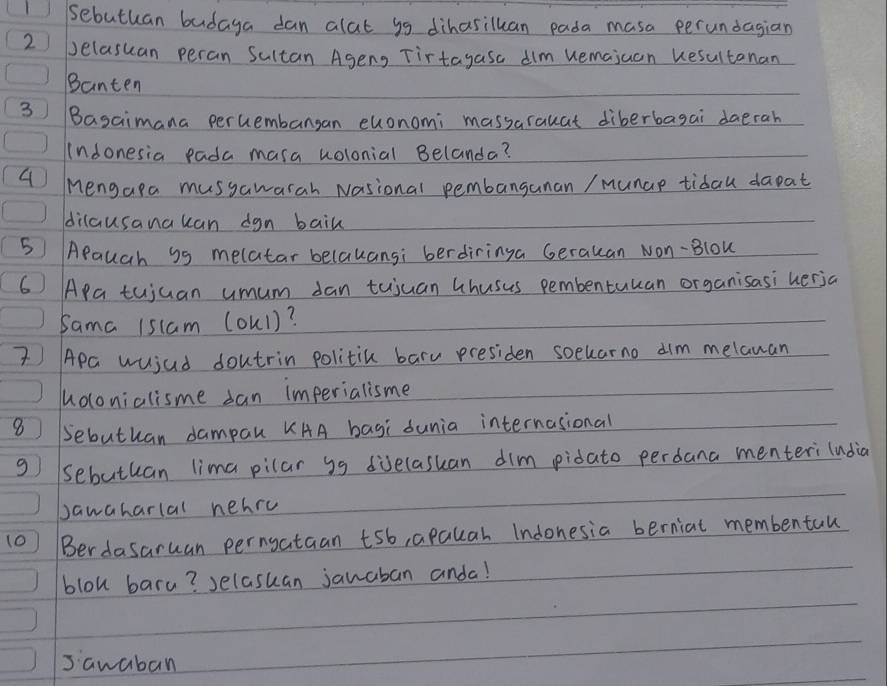 1 Sebutkan budaya dan alat yg dihasilkan pada masa perundagian
2 Jelaskan peran Sultan Ageng Tirtayasa dlm kemajuan kesultanan
Banten
3 Bagaimana perkembangan ekonomi masyarakat diberbagai daerah
Indonesia pada masa kolonial Belanda?
4 Mengapa musyawarah Nasional pembangunan / Munap tidak dapat
dilaksanakan dgn baik
5 Apakah yg melatar belakangi berdirinya Gerakan Non-Blok
6 Apa tujuan umum dan tujuan khusus pembentukan organisasi kerja
Sama Islam (OKI)?
7 Apa wujud doktrin politik baru presiden soekarno dlm melawan
kolonialisme dan imperialisme
8 Sebutkan dampak KAA bagi dunia internasional
9 Sebutkan lima pilar yg dijelaskan dlm pidato perdana menteri India
Jawaharlal nehru
10 Berdasarkan pernyataan tsb, apakah Indonesia berniat membentuk
blok baru? Jelaskan jawaban anda!
Jawaban